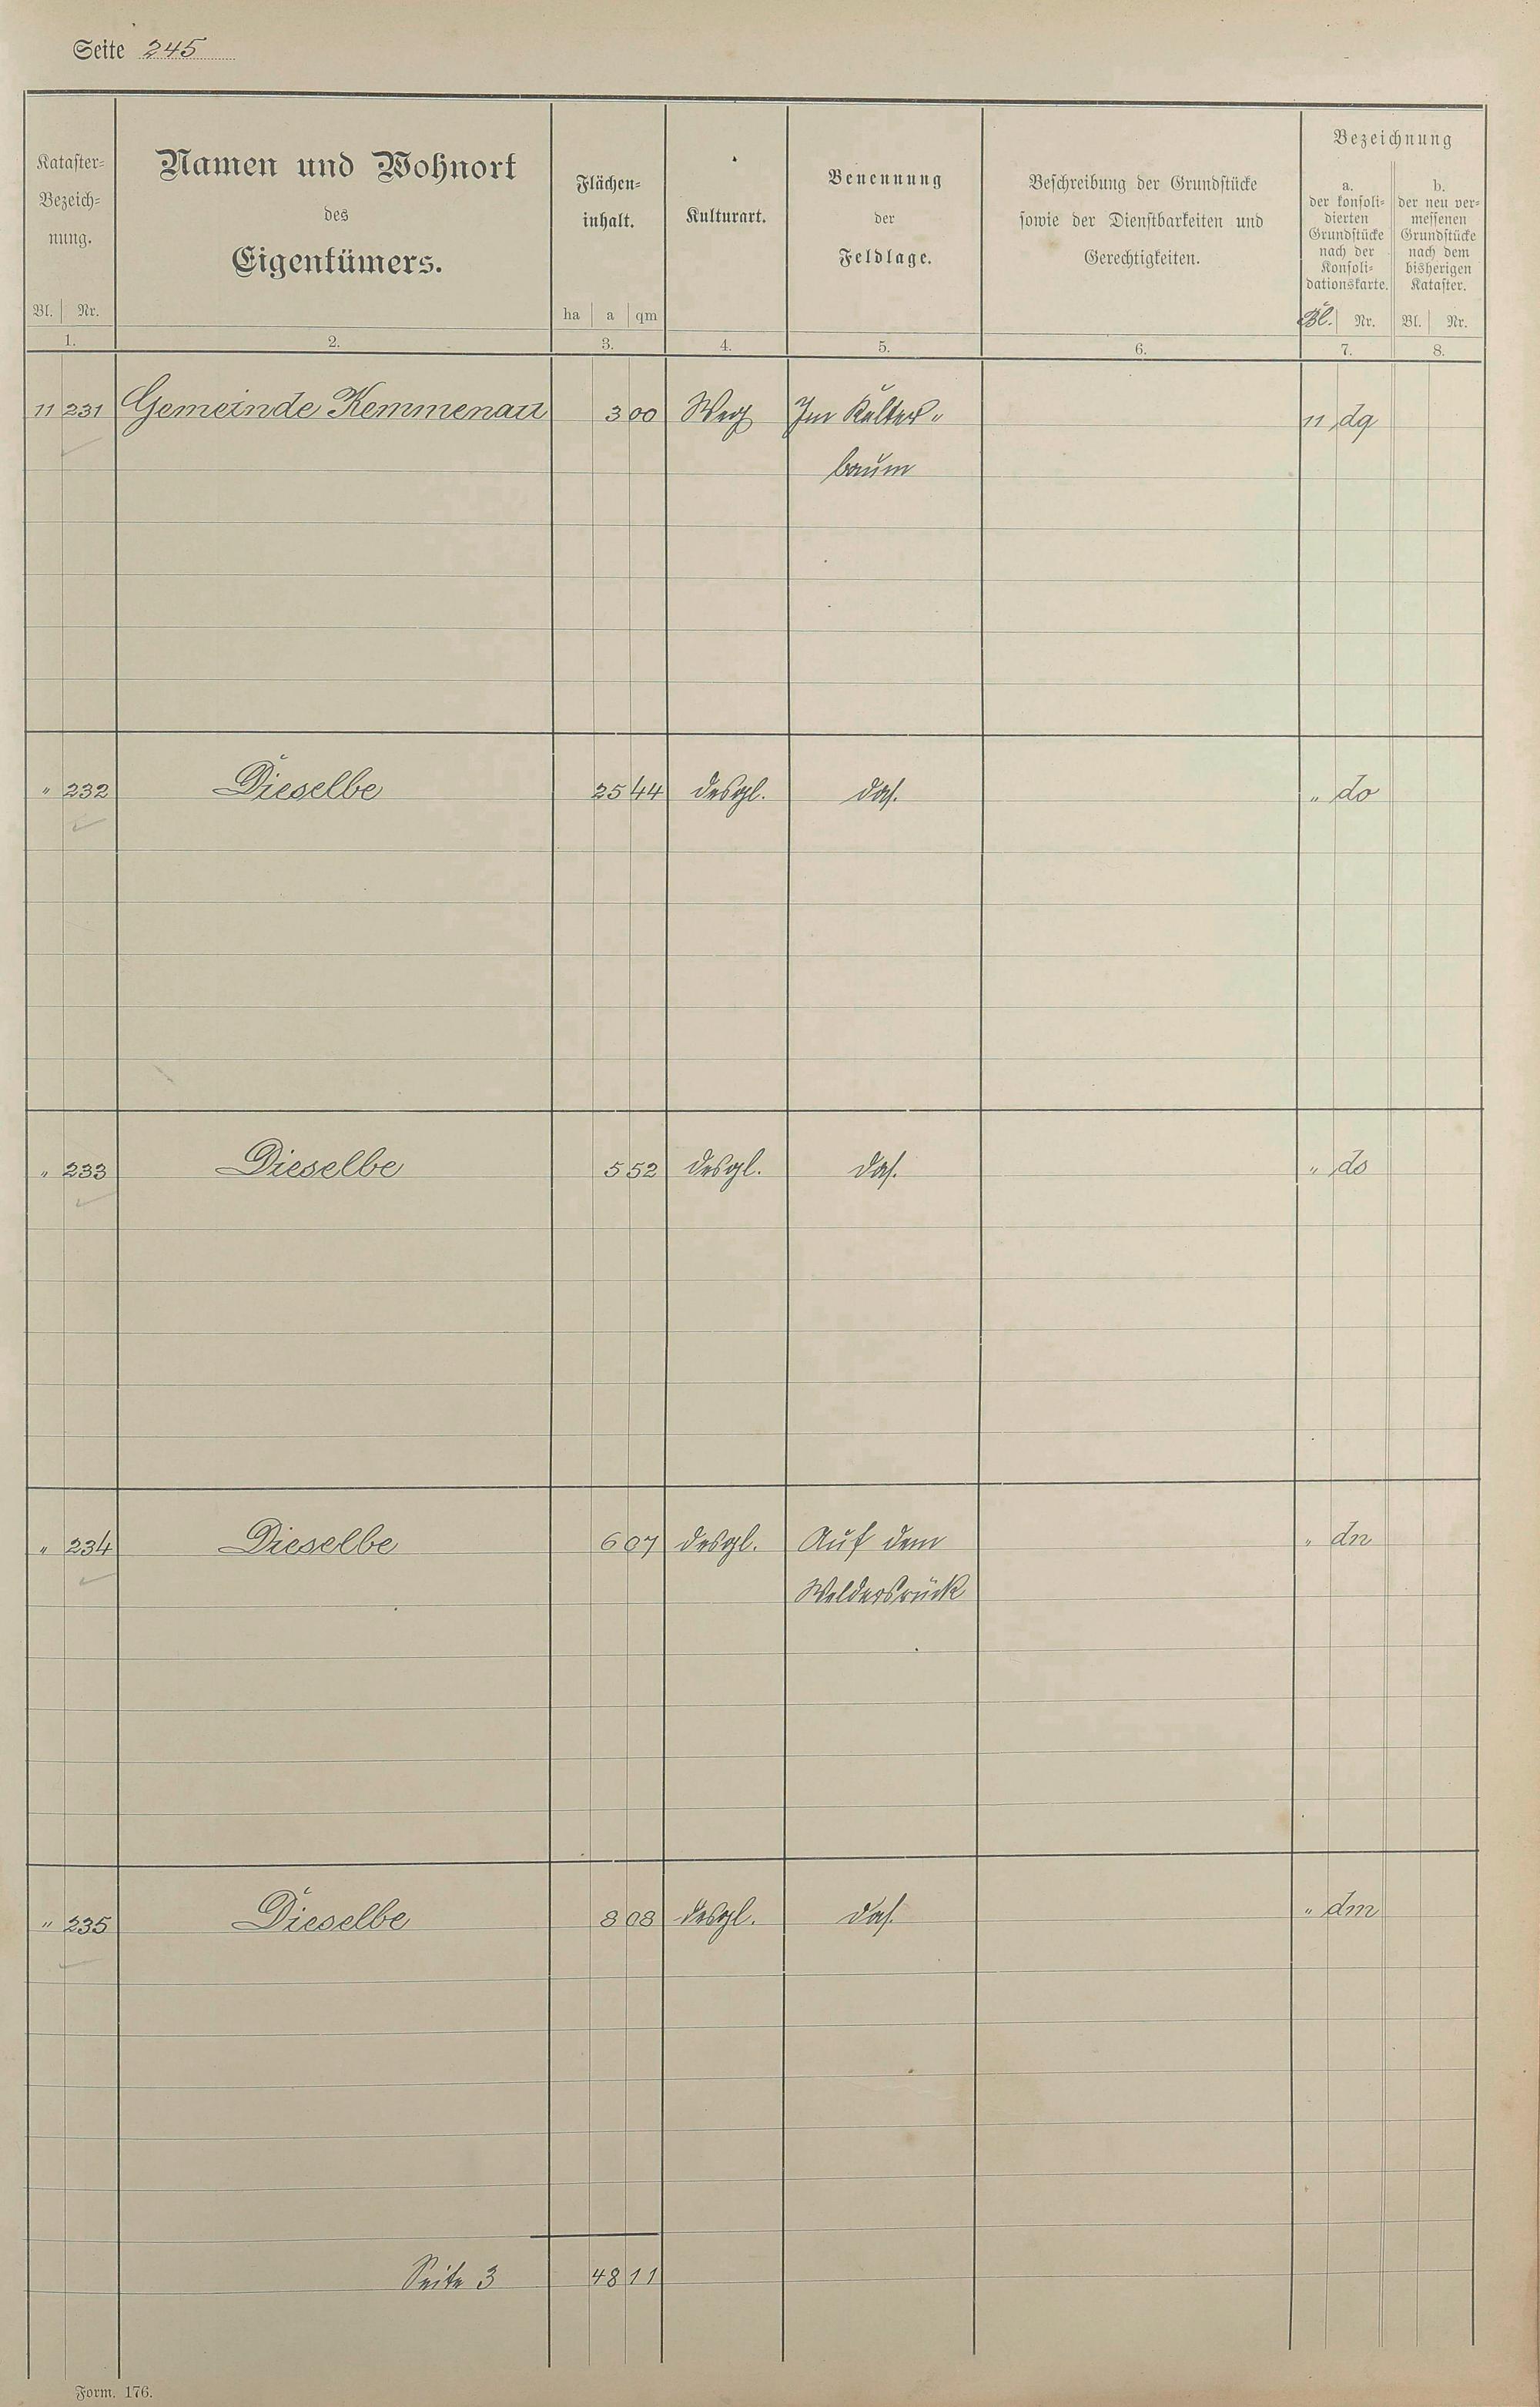 Seite 245
Kataster-
Bezeich-
nung.
Bl. Nr.
1.
Namen und Wohnort
des
Eigentümers.
2.
Flächen-
inhalt.
ha a qm
3.
Kulturart.
4.
Benennung
der
Feldlage.
5.
Beschreibung der Grundstücke
sowie der Dienstbarkeiten und
Gerechtigkeiten.
6.
Bezeichnung
a.
der konsoli-
dierten
Grundstücke
nach der
Konsoli-
dationskarte.
Bl. Nr.
7.
b.
der neu ver-
messenen
Grundstücke
nach dem
bisherigen
Kataster.
Bl. Nr.
8.
11 231 Gemeinde Kemmenau 3 00 Weg Im Kelter- 11 dq
baum
" 232 Dieselbe 25 44 desgl. das. " do
" 233 Dieselbe 5 52 desgl. das. " ds
" 234 Dieselbe 6 07 desgl. Auf dem " dn
" 235 Dieselbe 8 08 desgl. das. " dm
Seite 3 48 11
Form. 176.